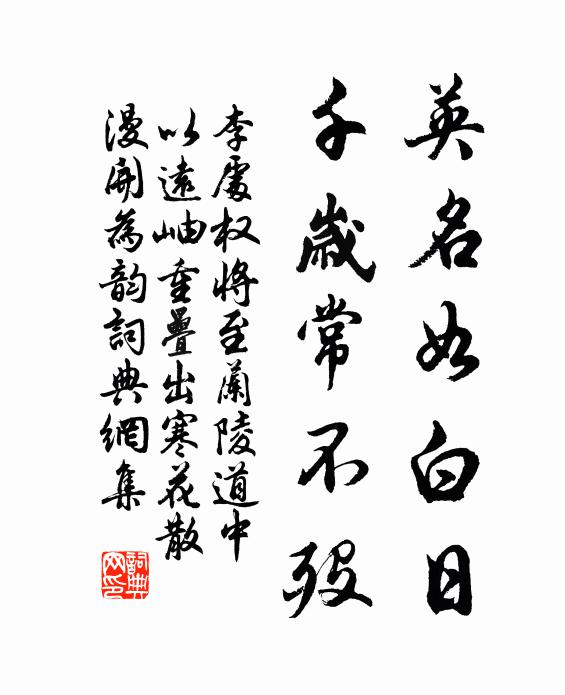 英名如白日
千歲常不歿
李處权將至蘭陵道中
以遠岫重疊出寒花散
漫開為韵詞典網集
詞典网印